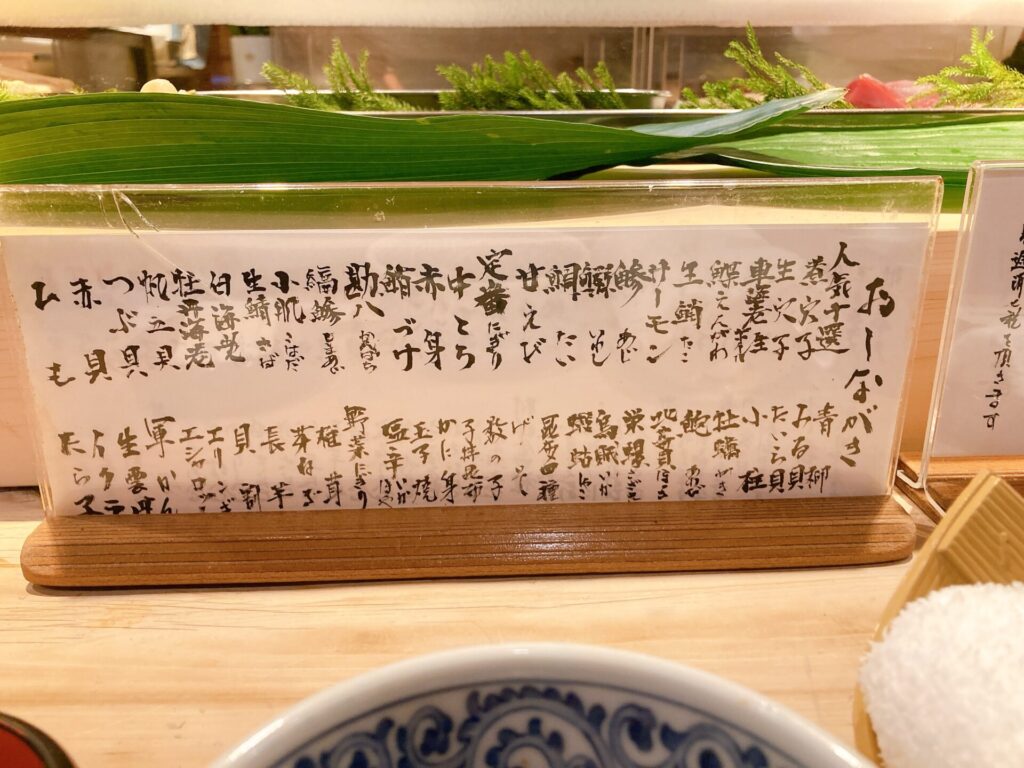 おしながき
人気十選
煮穴子
生穴子
車海老 生 ボイル
鰈 えんがわ
生鮹 たこ
サーモン
鯵 あじ
鰯 いわし
鯛 たい
甘えび
定番にぎり
中とろ
赤身
鮪づけ
勘八 かんぱち
縞鯵 しまあじ
小肌 こはだ
生鯖 さば
白海老
牡丹海老
帆立貝
つぶ貝
赤貝
ひも
青柳
みる貝
たいら貝
小柱
牡蠣 かき
鮑 あわび
北寄貝 ほっき
栄螺 さざえ
烏賊 いか
蝦蛄 しゃこ
昆布〆
げそ
数の子
子持昆布
かに身
玉子焼
塩辛 いか
野菜にぎり
椎茸
芽ねぎ
長芋
貝割
エリンギ
エシャロット
軍かん
生雲丹
イクラ
たら子